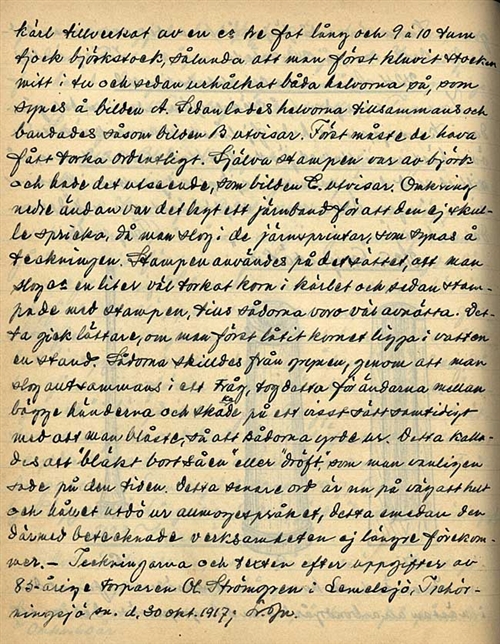 kärl tillverkat av en ca tre fot lång och 9 à 10 tum
tjock björkstock, sålunda att man först kluvit stocken
mitt i tu och sedan urhålkat båda halvorna så, som
synes å bilden A. Sedan lades halvorna tillsammans och
bandades såsom bilden B utvisar. Först måste de hava
fått torka ordentligt. Själva stampen var av björk
och hade det utseende, som bilden C. utvisar. Omkring
nedre ändan var det lagt ett järnband för att den ej skul-
le spricka, då man slog i de järnsprintar, som synas å
teckningen. Stampen användes på det sättet, att man
slog en liter väl torkat korn i kärlet och sedan stam-
pade med stampen, tills sådorna voro väl avnötta. Det-
ta gick lättare, om man först låtit kornet ligga i vatten
en stund. Sådorna skilldes från grynen, genom att man
slog alltsammans i ett tråg, tog detta för ändarna mellan
bägge händerna och skakade på ett visst sätt samtidigt
med att man blåste, så att sådorna yrde ur. Detta kalla-
des att "bläkt bort såen" eller "dröft", som man vanligen
sade på den tiden. Detta senare ord är nu på väg att helt
och hållet utdö ur allmogespråket, detta emedan den
därmed betecknade verksamheten ej längre förekom-
mer. – Teckningarna och texten efter uppgifter av
85-årige torparen Ol. Strömgren i Lemelsjö,
sn. d. 30 okt. 1917;